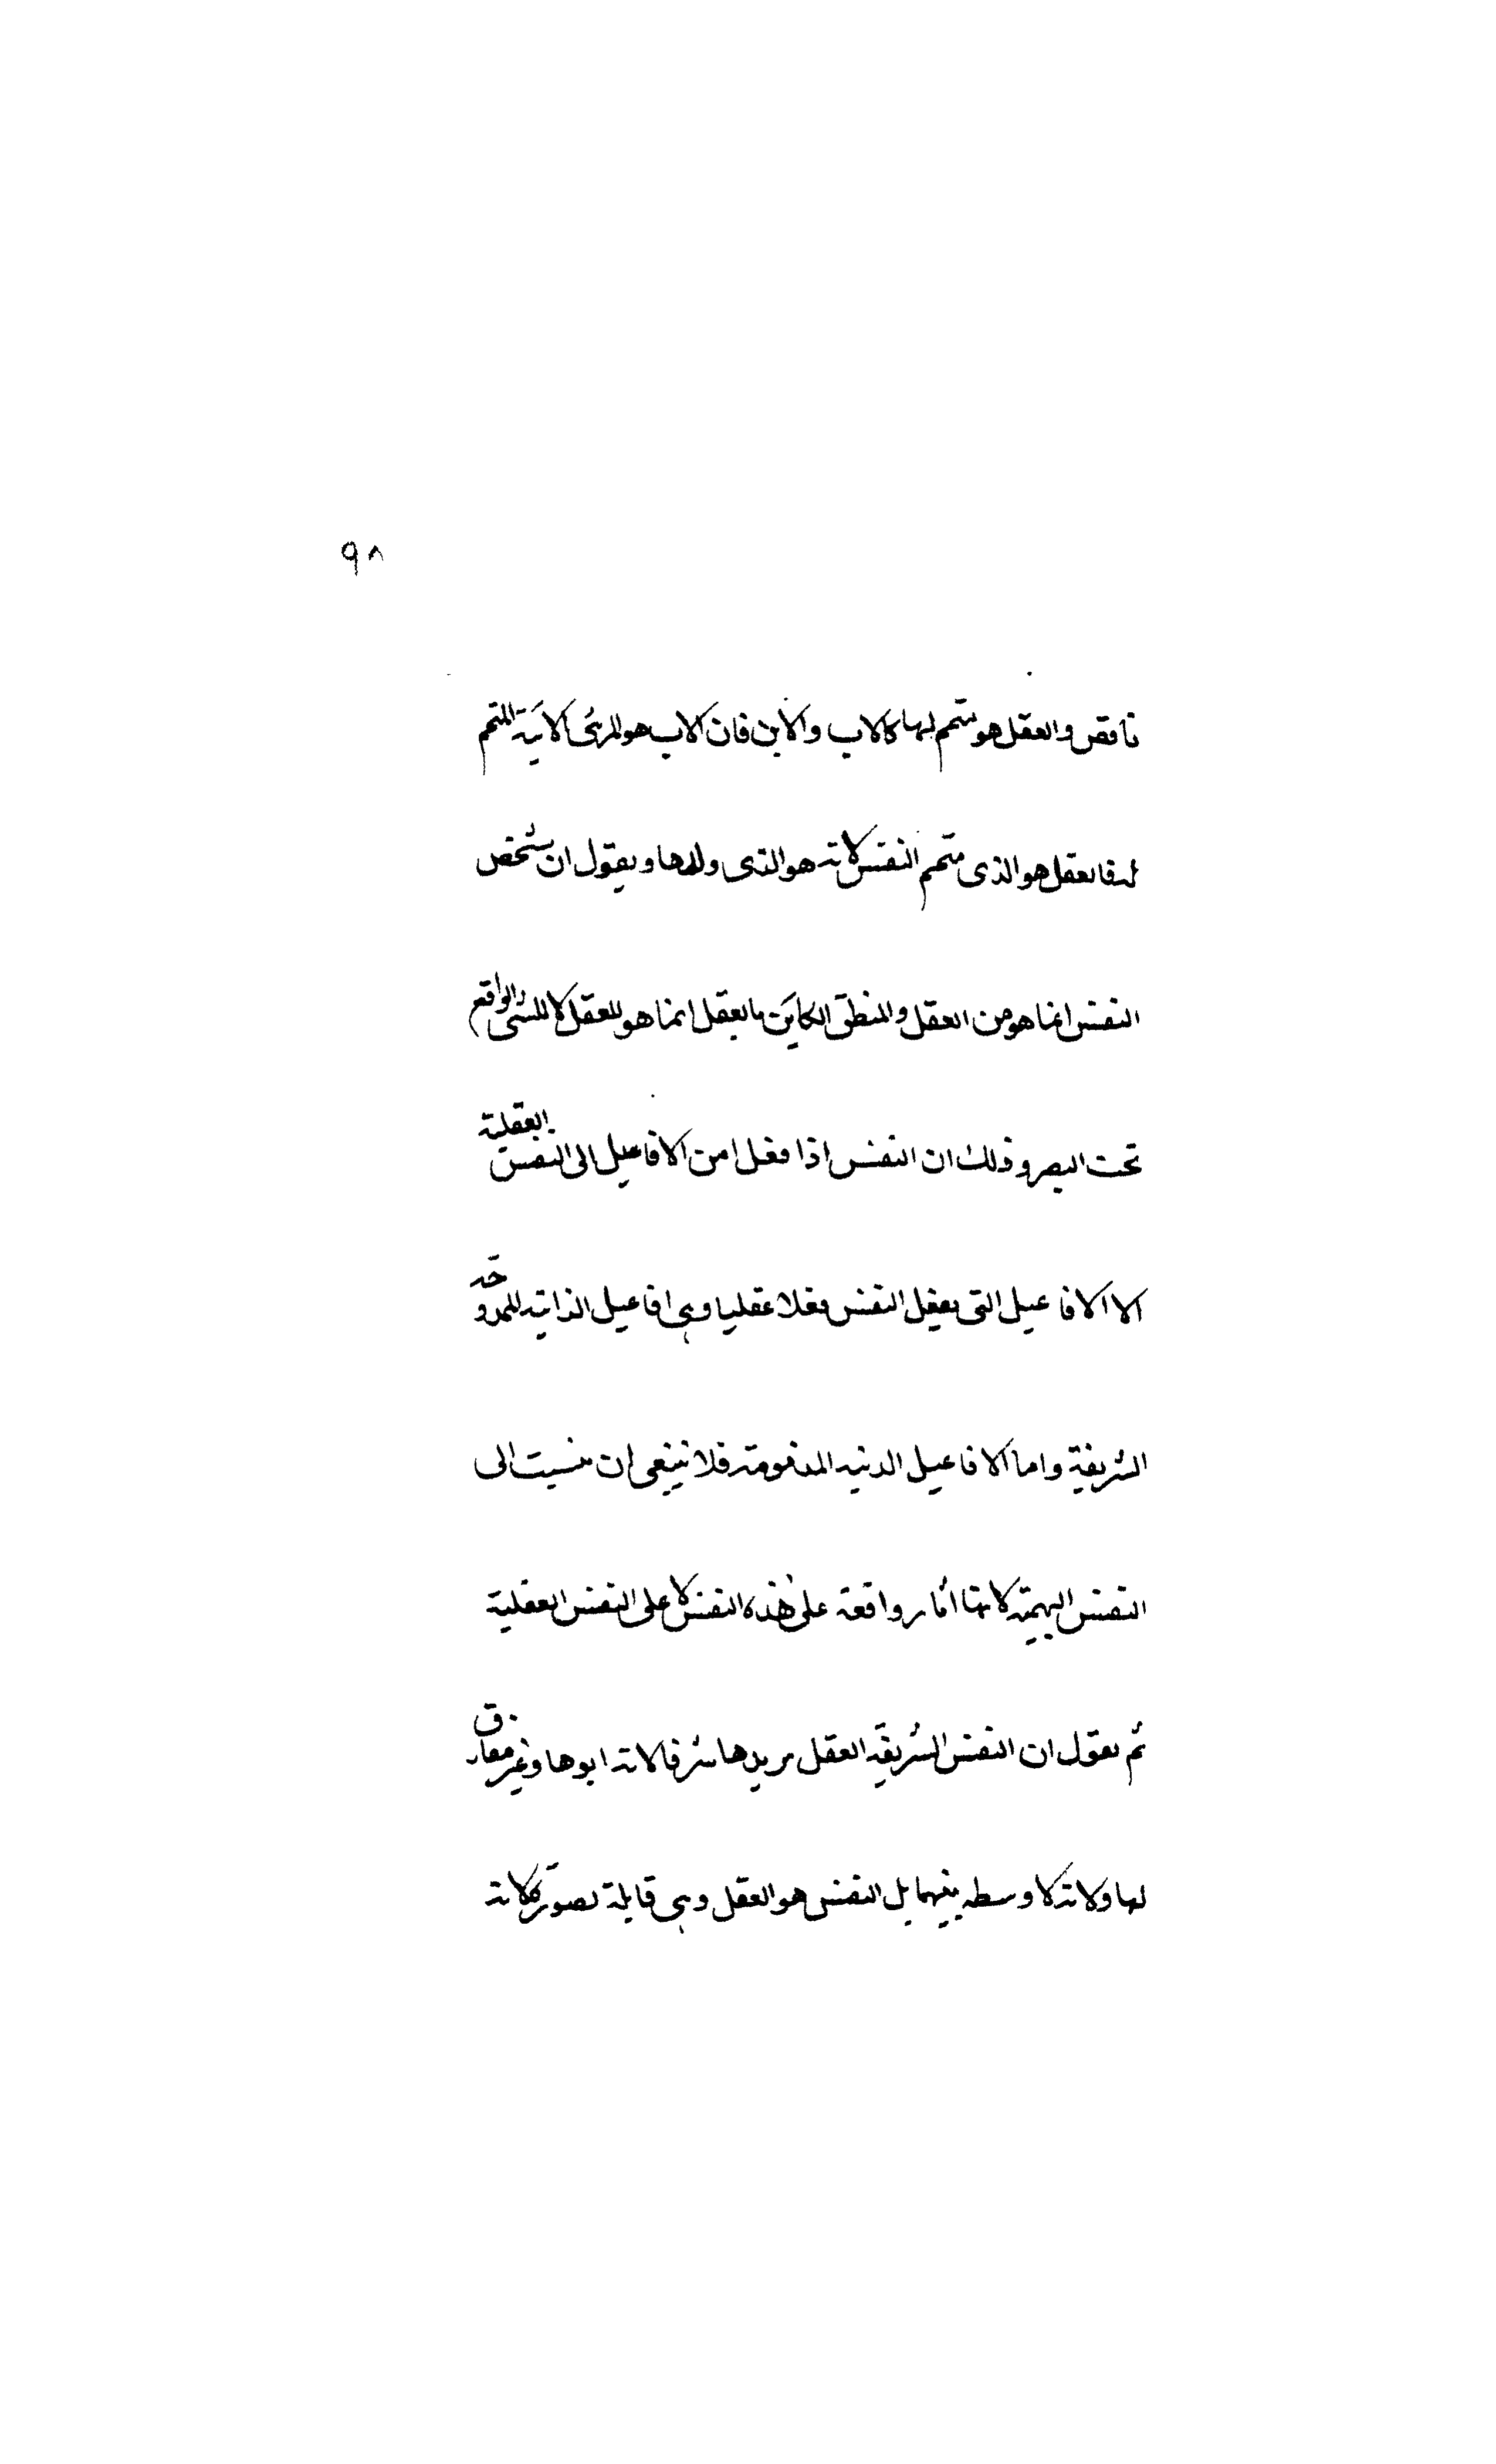 ٩٨
ناقص والعقل هو متمم لها كالاب والابن فان الاب هو المربى لابنه المتمم
له فالعقل هو الذى متمم النفس لانه هو الذى ولدها ويقول ان شخص
النفس انما هو من العقل والمنطق الكاين بالعقل انما هو للعقل لا للشئ الواقع
تحت البصر وذلك ان النفس اذا فعل امن الافاعيل الى النفس العقلية
الا الافاعيل التى يفعل النفس فعلا عقليا وهى افاعيل الذاتيه الممدوحة
الشريفة واما الافاعيل الدنيه المذمومة فلا ينبغى ان ينسبت الى
النفس البهميه لانها اثار واقعة على هذه النفس لا على النفس العقلية
ثم يقول ان النفس الشريفة العقل يريدها شرفا لانه ابوها وغير مفارق
لها ولانه لا وسطه بينهما بل النفس هو العقل وهى قابلة لصورته لانه